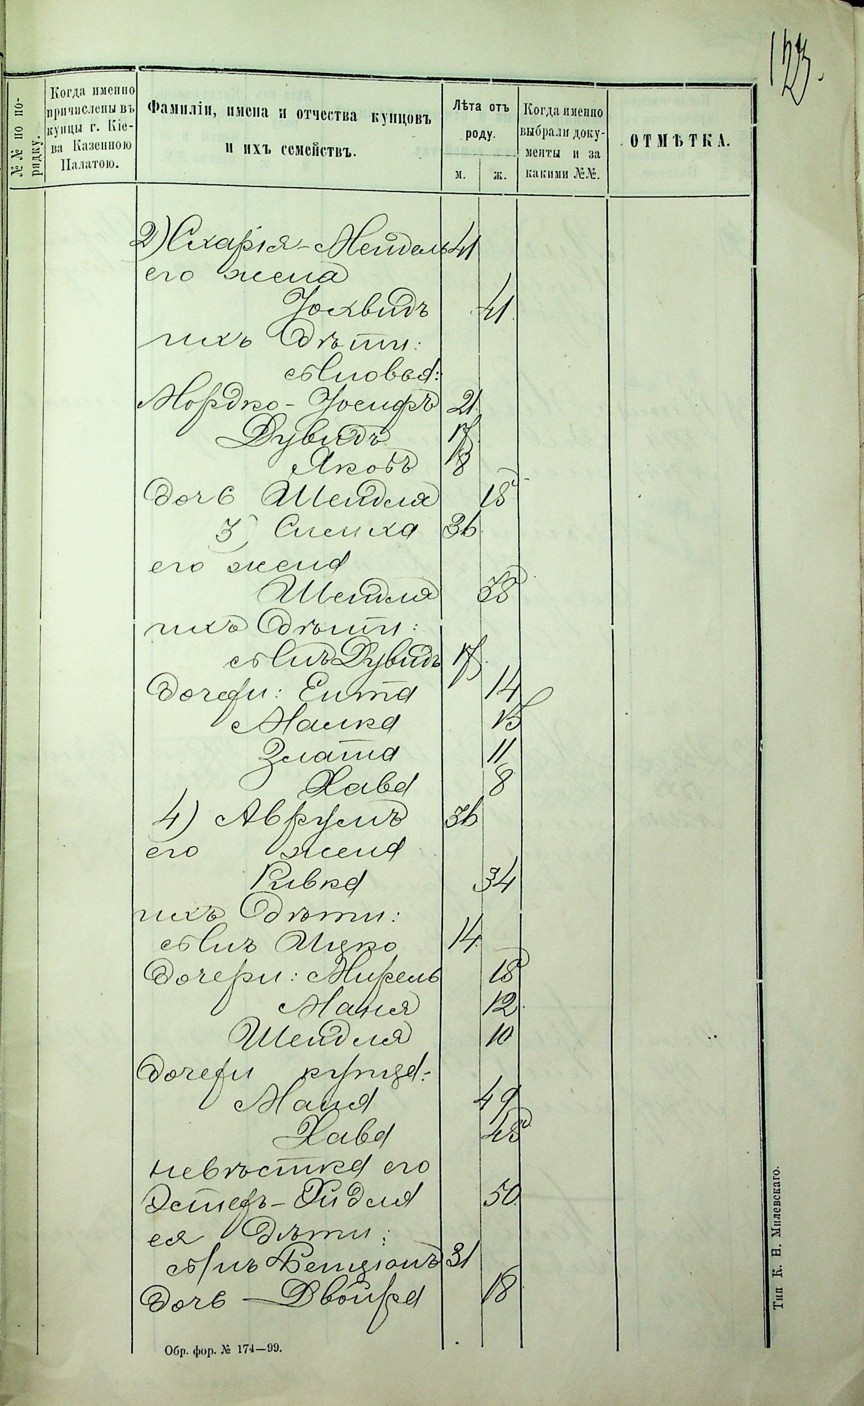 123.
№№ по по-
рядку.
Когда именно
причислены въ
купцы г. Кіе-
ва Казенною
Палатою.
Фамиліи, имена и отчества купцовъ
и ихъ семействъ.
Лѣта отъ
роду.
м. ж.
Когда именно
выбрали доку-
менты и за
какими №№.
ОТМѢТКА.
2) Схарія-Мендель 41
его жена
Іохвидъ 41
ихъ дѣти:
сыновья:
Мордко-Іосифъ 21
Дувидъ 17
Яковъ 8
дочь Шейдля 18
3) Симха 36
его жена
Шейдля 38
ихъ дѣти:
сынъ Дувидъ 17
дочери: Ента 14
Малка 13
Злата 11
Хава 8
4) Аврумъ 36
его жена
Ривка 34
ихъ дѣти:
сынъ Ицко 14
дочери: Мирель 18
Маня 12
Шейдля 10
дочери купца:
Маня 49
Хава 45
невѣстка его
Эстеръ-Хидля 50
ея дѣти:
сынъ Бенціонъ 31
дочь Двойра 18
Обр. фор. № 174—99.
Тип К. Н. Милевскаго.